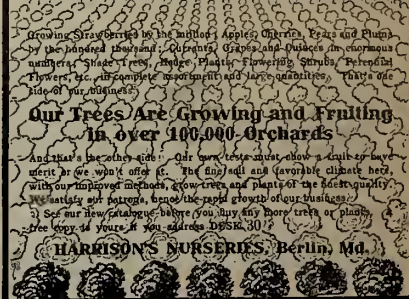 Growing Strawberries by the million; Apples, Cherries, Pears and Plums
by the hundred thousand; Currants, Grapes and Quinces in enormous
numbers; Shade Trees, Hedge Plants, Flowering Shrubs, Perennial
Flowers, etc., in complete assortment and large quantities. That's one
side of our business.
Our Trees Are Growing and Fruiting
in over 100,000 Orchards
And that's the other side! Our own tests must show a fruit to have
merit or we won't offer it. The fine soil and favorable climate here,
with our improved methods, grow trees and plants of the finest quality.
We satisfy our patrons, hence the rapid growth of our business.
See our new catalogue before you buy any more trees or plants. A
free copy is yours if you address DESK 30
HARRISON'S NURSERIES, Berlin, Md.